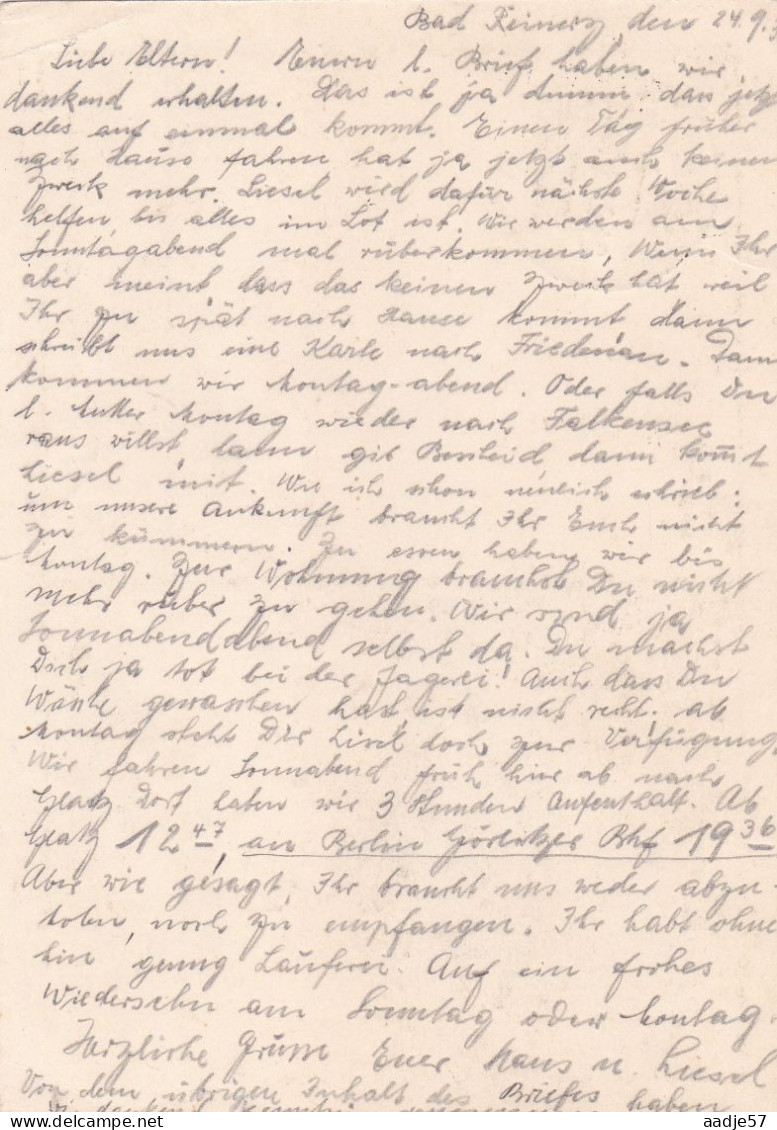 Bad Reinerz, den 24.9.3
Liebe Eltern! Euern l. Brief haben wir
dankend erhalten. Das ist ja dumm, dass jetzt
alles auf einmal kommt. Einen Tag früher
nach Hause fahren hat ja jetzt auch keinen
Zweck mehr. Liesel wird dafür nächste Woche
helfen bis alles im Lot ist. Wir werden am
Sonntagabend mal rüberkommen, Wenn Ihr
aber meint dass das keinen Zweck hat weil
Ihr zu spät nach Hause kommt dann
schreibt uns eine Karte nach Friedenau. Dann
kommen wir Montag-abend. Oder falls Du
l. Mutter Montag wieder nach Falkensee
raus willst, dann gib Bescheid dann kom̄t
Liesel mit. Wie ich schon neulich schrieb:
um unsere Ankunft braucht Ihr Euch nicht
zu kümmern. Zu essen haben wir bis
Montag. Zur Wohnung brauchst Du nicht
mehr rüber zu gehen. Wir sind ja
Sonnabendabend selbst da. Du machst
Dich ja tot bei der Jagerei! Auch dass Du
Wäsche gewaschen hast, ist nicht recht, ab
Montag steht Dir Liesel doch zur Verfügung.
Wir fahren Sonnabend früh hier ab nach
Glatz Dort haben wir 3 Stunden Aufenthalt. Ab
Glatz 12 47, an Berlin Görlitzer Bhf 19 36
Aber wie gesagt, Ihr braucht uns weder abzu-
holen, noch zu empfangen. Ihr habt ohne
hin genug Lauferei. Auf ein frohes
Wiedersehn am Sonntag oder Montag.
Herzliche Grüsse Euer Hans u. Liesel
Von dem übrigen Inhalt des Briefes haben
aadje57